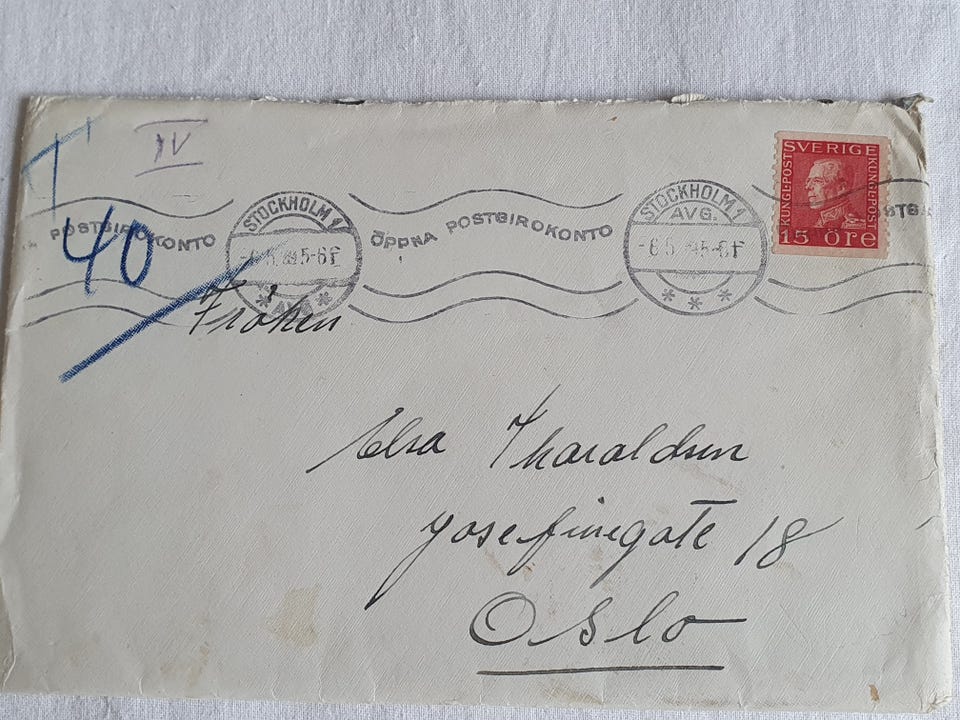 T
IV
40
POSTGIROKONTO
STOCKHOLM 1
AVG.
ÖPPNA POSTGIROKONTO
STOCKHOLM 1
AVG.
SVERIGE
KUNGL·POST
KUNGL·POST
15 ÖRE
Fröken
Elsa Tharaldsen
Josefinegate 18
Oslo